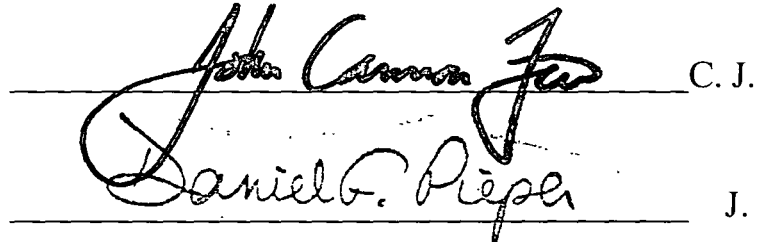 John Cannon Few C. J.
Daniel F. Pieper J.